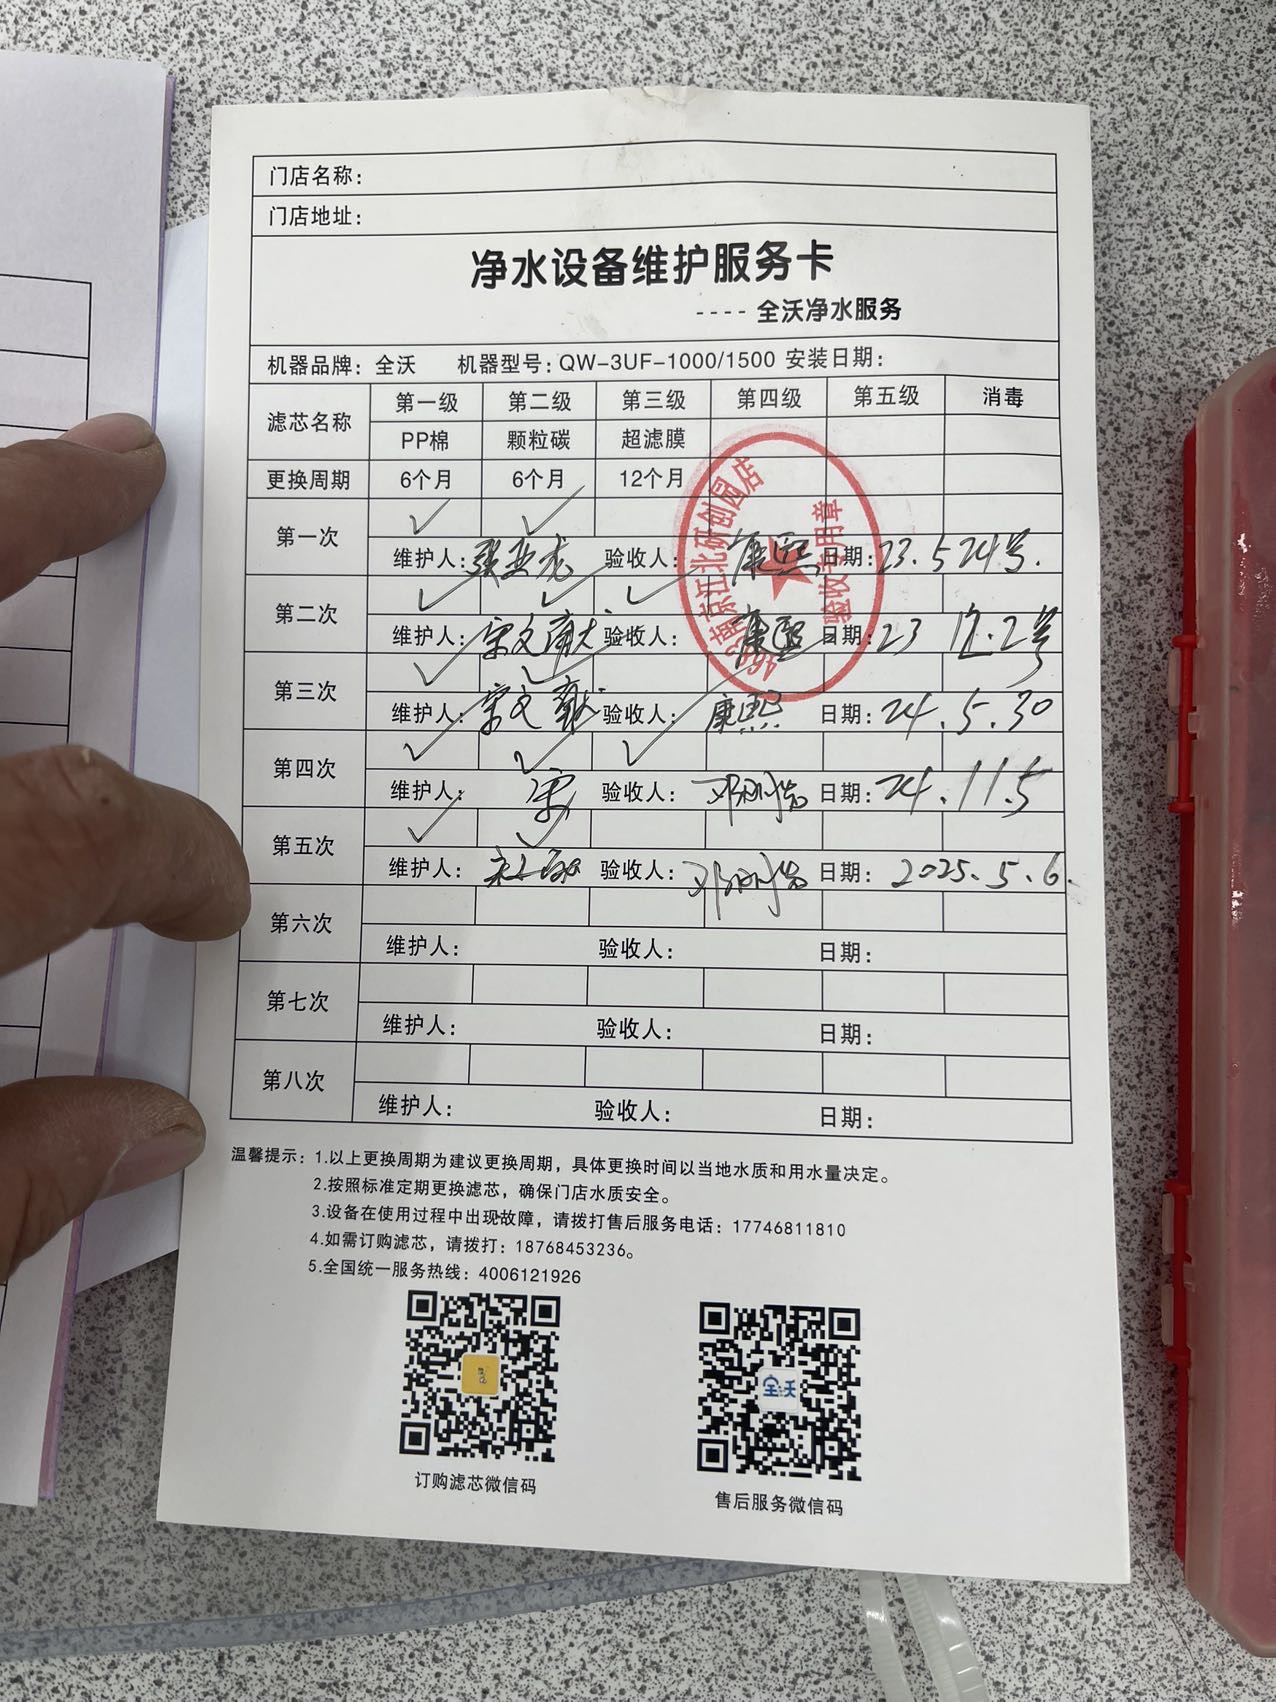 门店名称：
门店地址：
净水设备维护服务卡
---- 全沃净水服务
机器品牌：全沃 机器型号：QW-3UF-1000/1500 安装日期：
滤芯名称 第一级 第二级 第三级 第四级 第五级 消毒
PP棉 颗粒碳 超滤膜
更换周期 6个月 6个月 12个月
第一次 ✓ ✓
维护人：张亚龙 验收人：康熙 日期：23.5 24号.
第二次 ✓ ✓ ✓
维护人：宋文献 验收人：康熙 日期：23 12.2号
第三次 ✓ ✓
维护人：宋文献 验收人：康熙 日期：24.5.30
第四次 ✓ ✓ ✓
维护人：宋 验收人：邓 日期：24.11.5
第五次 ✓ ✓
维护人： 验收人：邓 日期：2025.5.6.
第六次
维护人： 验收人： 日期：
第七次
维护人： 验收人： 日期：
第八次
维护人： 验收人： 日期：
南京江北研创园店
验收专用章
温馨提示：1.以上更换周期为建议更换周期，具体更换时间以当地水质和用水量决定。
2.按照标准定期更换滤芯，确保门店水质安全。
3.设备在使用过程中出现故障，请拨打售后服务电话：17746811810
4.如需订购滤芯，请拨打：18768453236。
5.全国统一服务热线：4006121926
全沃
订购滤芯微信码
售后服务微信码